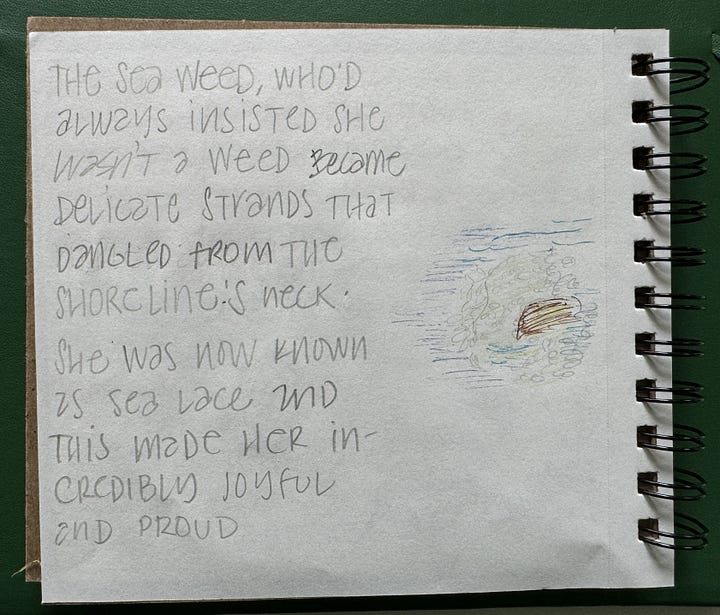 THE Sea WEED, WHO'D
ALWAYS INSISTED SHE
WASN'T a WEED Became
DELICATE STRANDS THAT
DANGLED FROM THE
SHORELINE'S NECK.
SHE WAS NOW KNOWN
as sea Lace AND
THIS MADE HER IN-
CREDIBLY JOYFUL
AND PROUD